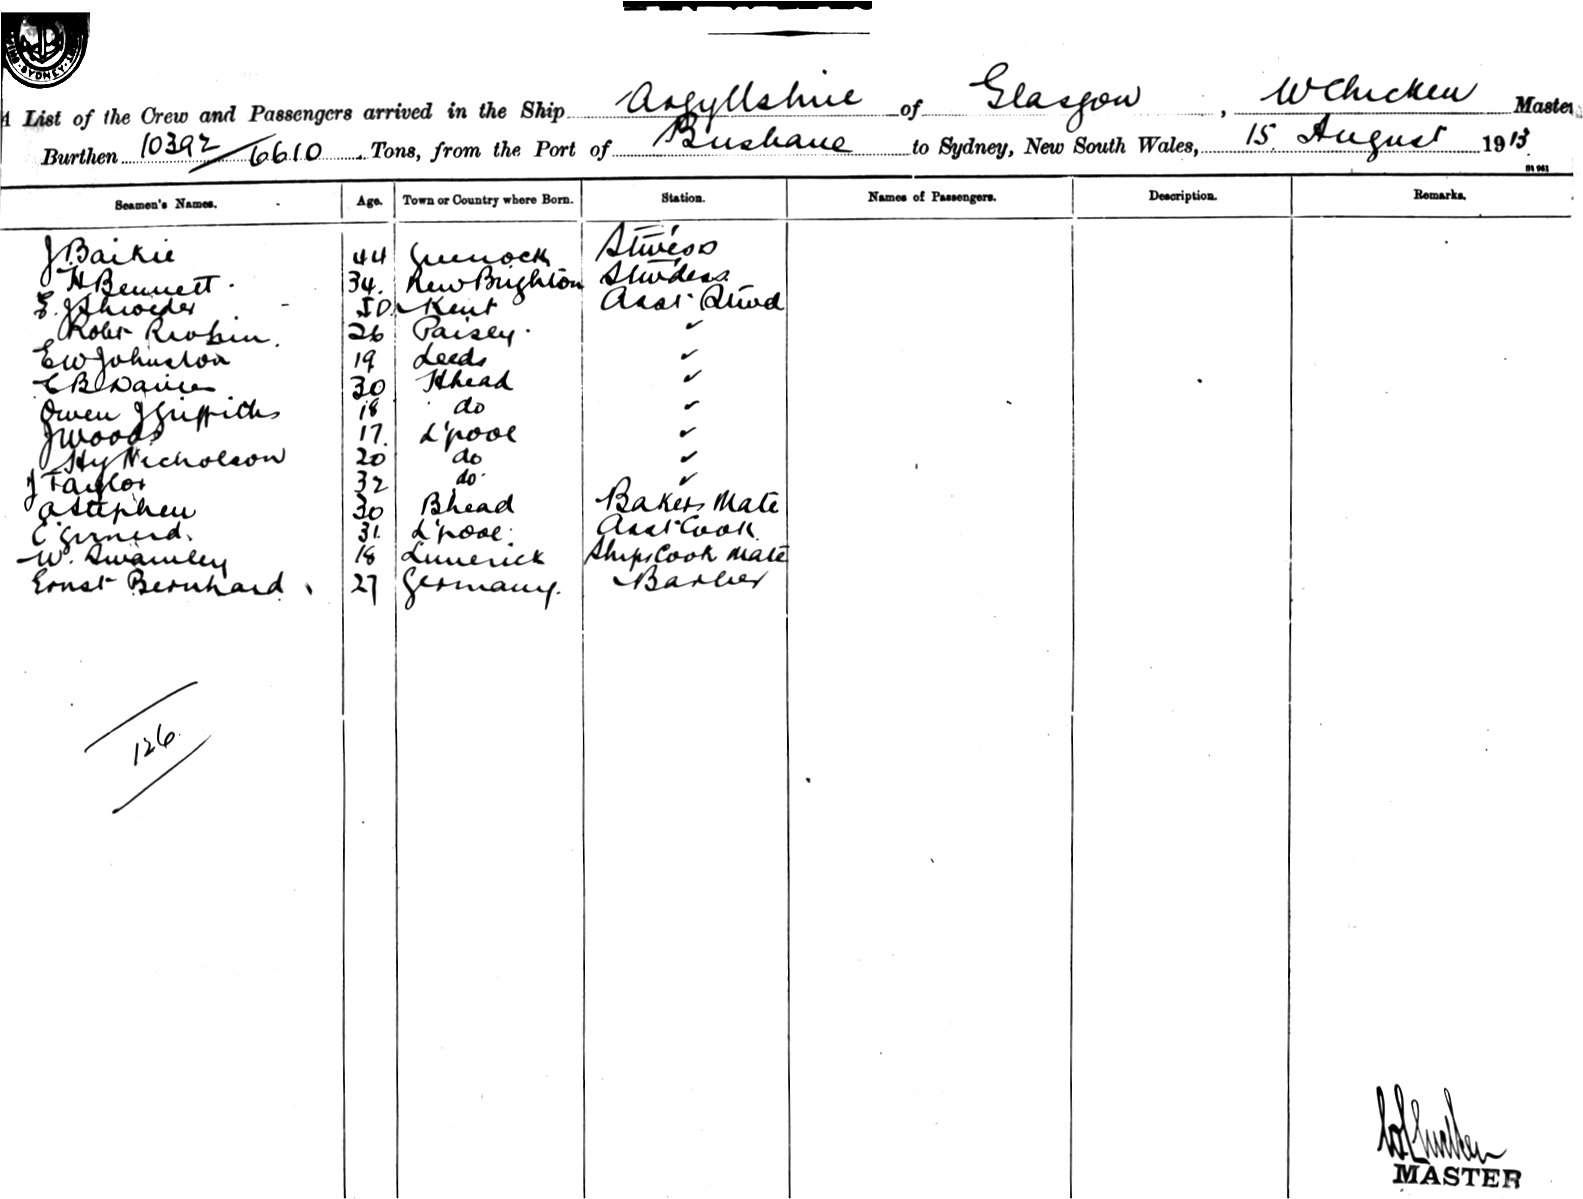 SYDNEY
A List of the Crew and Passengers arrived in the Ship Argyllshire of Glasgow, W Chicken Master
Burthen 10392/6610 Tons, from the Port of Brisbane to Sydney, New South Wales, 15 August 1913
Seamen's Names. Age. Town or Country where Born. Station. Names of Passengers. Description. Remarks.
J Baikie 44 Greenock Stwdess
H Bennett 34 New Brighton Stwdess
E. J Shroeder 50 Kent Asst Stwd
Robt 26 Paisley ✓
E W Johnston 19 Leeds ✓
E B Davies 30 Hhead ✓
Owen J Griffiths 18 do ✓
J Woods 17 L'pool ✓
Hy Nicholson 20 do ✓
J Taylor 32 do ✓
A Stephen 30 Bhead Bakers Mate
C 31 L'pool Asst Cook
W. Swamley 18 Limerick Ships Cook Mate
Ernst Bernhard 27 Germany. Barber
126
W Chicken
MASTER